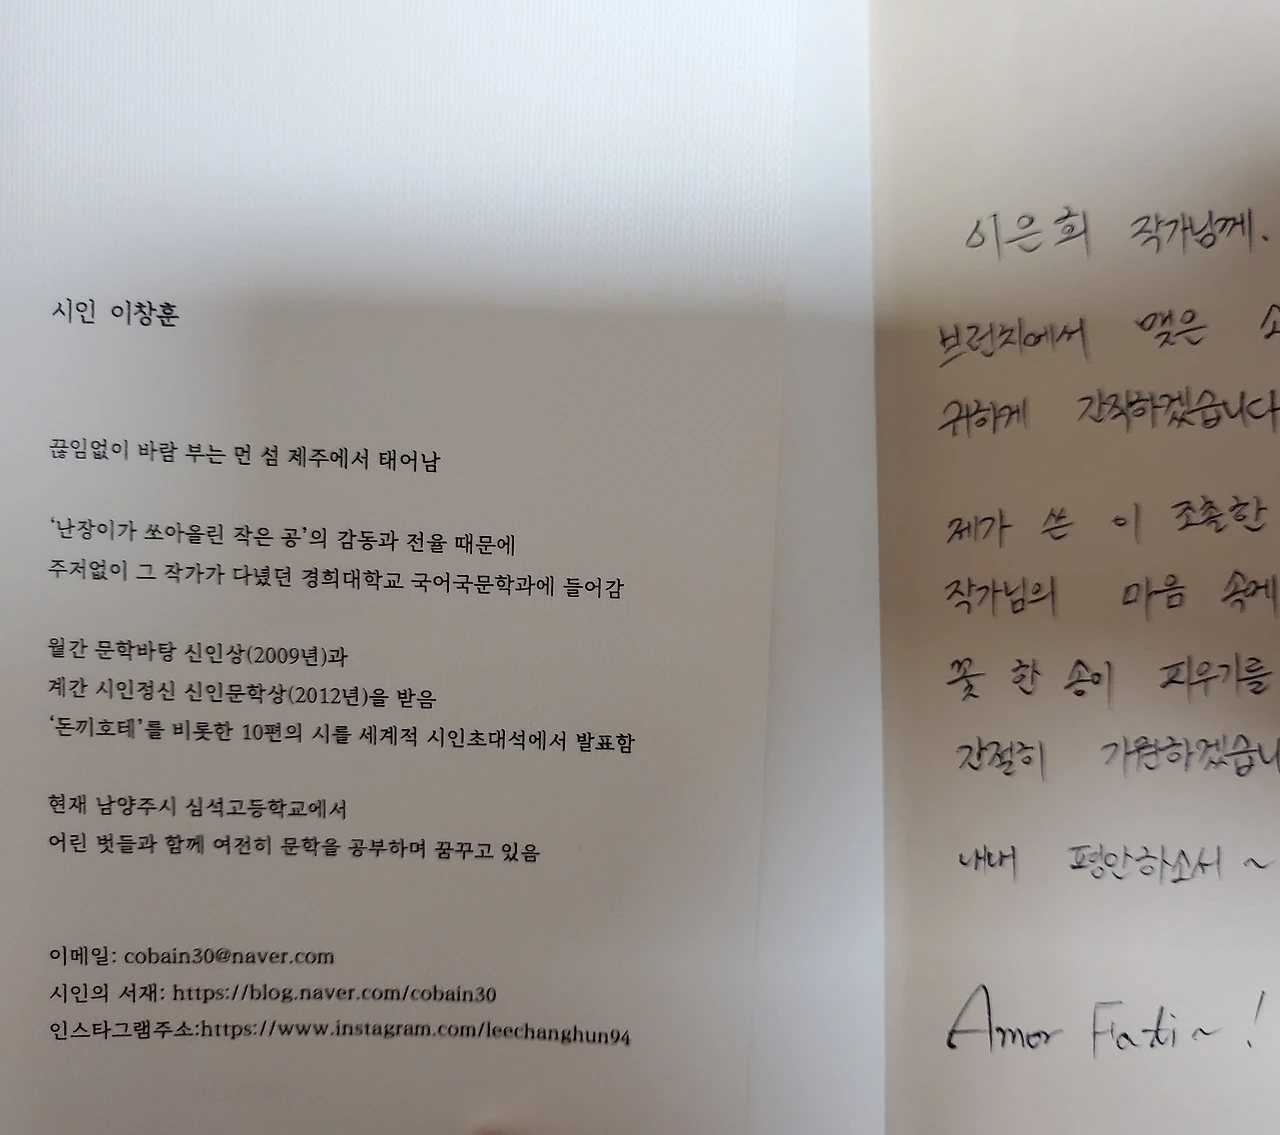 시인 이창훈
끊임없이 바람 부는 먼 섬 제주에서 태어남
‘난장이가 쏘아올린 작은 공’의 감동과 전율 때문에
주저없이 그 작가가 다녔던 경희대학교 국어국문학과에 들어감
월간 문학바탕 신인상(2009년)과
계간 시인정신 신인문학상(2012년)을 받음
‘돈끼호테’를 비롯한 10편의 시를 세계적 시인초대석에서 발표함
현재 남양주시 심석고등학교에서
어린 벗들과 함께 여전히 문학을 공부하며 꿈꾸고 있음
이메일: cobain30@naver.com
시인의 서재: https://blog.naver.com/cobain30
인스타그램주소:https://www.instagram.com/leechanghun94
이은희 작가님께.
브런치에서 맺은
귀하게 간직하겠습니다
제가 쓴 이 조촐한
작가님의 마음 속에
꽃 한 송이 피우기를
간절히 기원하겠습니
내내 평안하소서 ~
Amor Fati ~ !